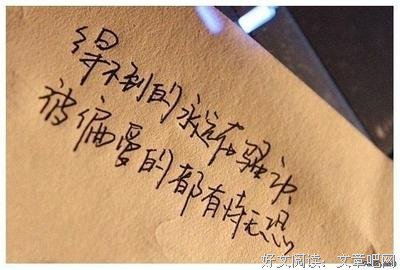 得不到的永远在骚动
被偏爱的都有恃无恐
好文阅读：文章吧网